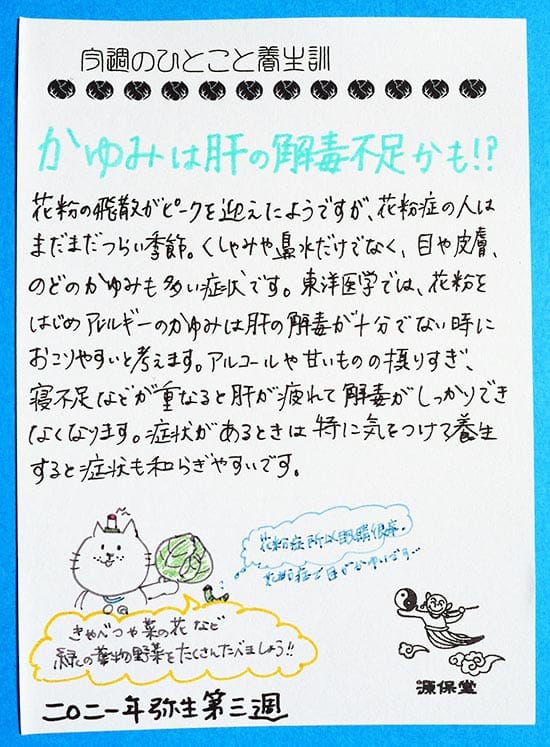 今週のひとこと養生訓
かゆみは肝の解毒不足かも!?
花粉の飛散がピークを迎えたようですが、花粉症の人は
まだまだつらい季節。くしゃみや鼻水だけでなく、目や皮膚、
のどのかゆみも多い症状です。東洋医学では、花粉を
はじめアレルギーのかゆみは肝の解毒が十分でない時に
おこりやすいと考えます。アルコールや甘いものの摂りすぎ、
寝不足などが重なると肝が疲れて解毒がしっかりでき
なくなります。症状があるときは特に気をつけて養生
すると症状も和らぎやすいです。
花粉症所以眼睛很痒.
花粉症で目がかゆいです…
きゃべつや菜の花など
緑の葉物野菜をたくさんたべましょう!!
源保堂
二〇二一年弥生第三週